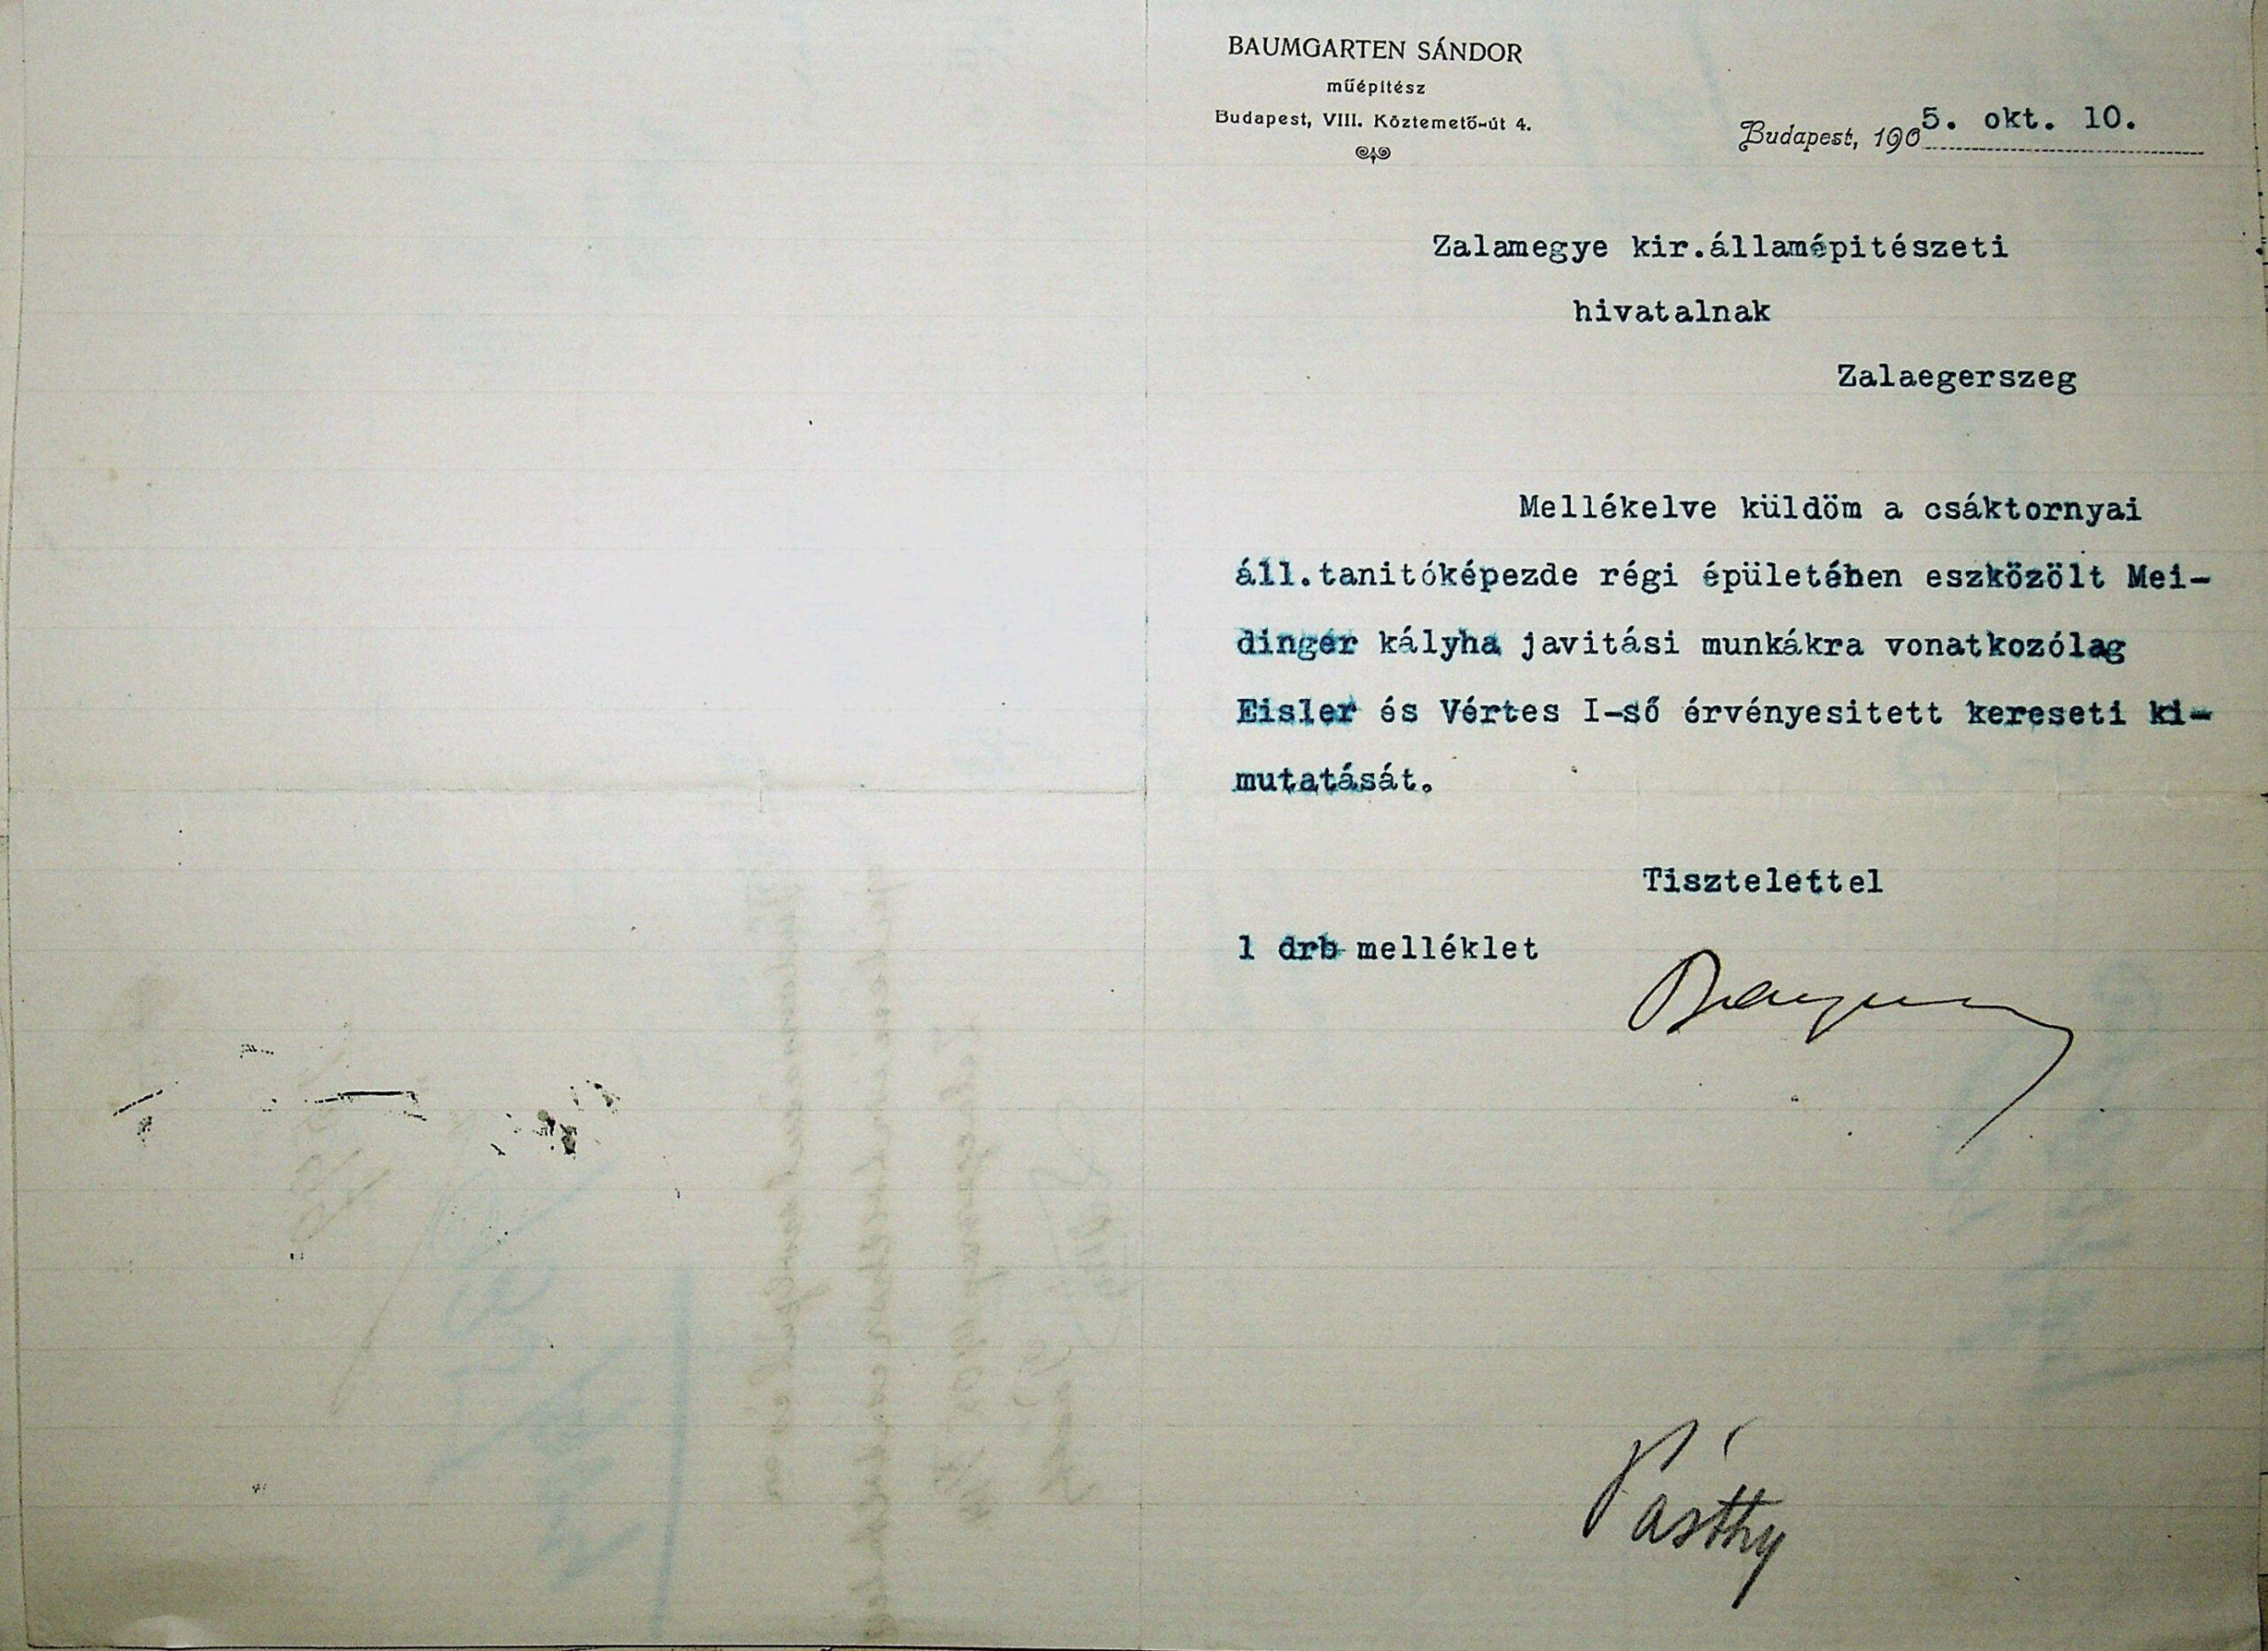 BAUMGARTEN SÁNDOR
műépitész
Budapest, VIII. Köztemető-út 4.
Budapest, 1905. okt. 10.
Zalamegye kir.államépitészeti
hivatalnak
Zalaegerszeg
Mellékelve küldöm a csáktornyai
áll.tanitóképezde régi épületében eszközölt Mei-
dinger kályha javitási munkákra vonatkozólag
Eisler és Vértes I-ső érvényesitett kereseti ki-
mutatását.
Tisztelettel
1 drb melléklet
Pásthy